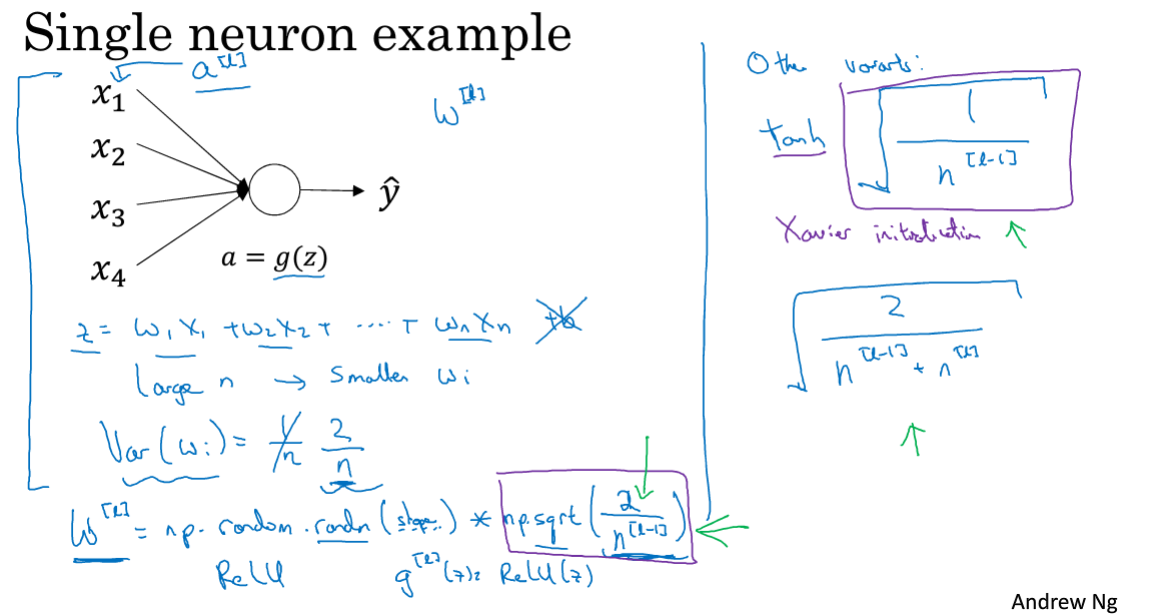 Single neuron example
a^[l]
x₁
x₂
x₃
x₄
ŷ
a = g(z)
W^[l]
z = w₁x₁ + w₂x₂ + ..... + wₙxₙ +b
Large n → Smaller wᵢ
Var(wᵢ) = 1/n 2/n
W^[l] = np.random.randn(shape..) * np.sqrt(2/n^[l-1])
ReLU g^[l](z) = ReLU(z)
Other variants:
tanh √(1/n^[l-1])
Xavier initialization ↑
√(2/(n^[l-1] + n^[l]))
↑
Andrew Ng